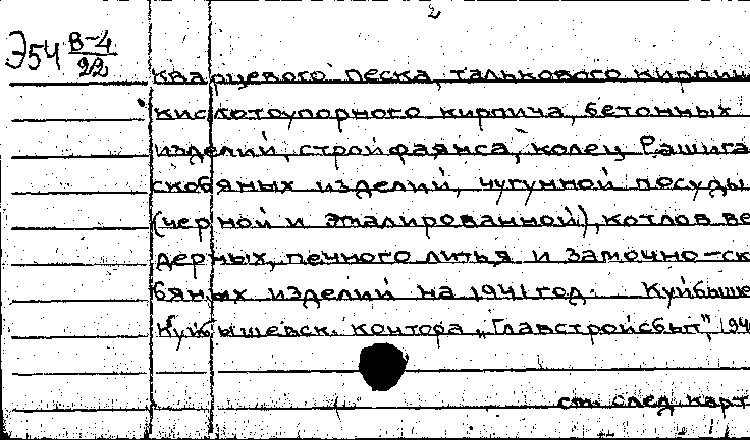 2
Э54 В-4
22
кварцевого песка, талькового кирпи
кислотоупорного кирпича, бетонных
изделий, стройфаянса, колец Рашига
скобяных изделий, чугунной посуды
(черной и эмалированной), котлов ве
дерных, печного литья и замочно-ск
бяных изделий на 1941 год. Куйбыше
Куйбышевск. контора „Главстройсбыт", 194
см. след. карт